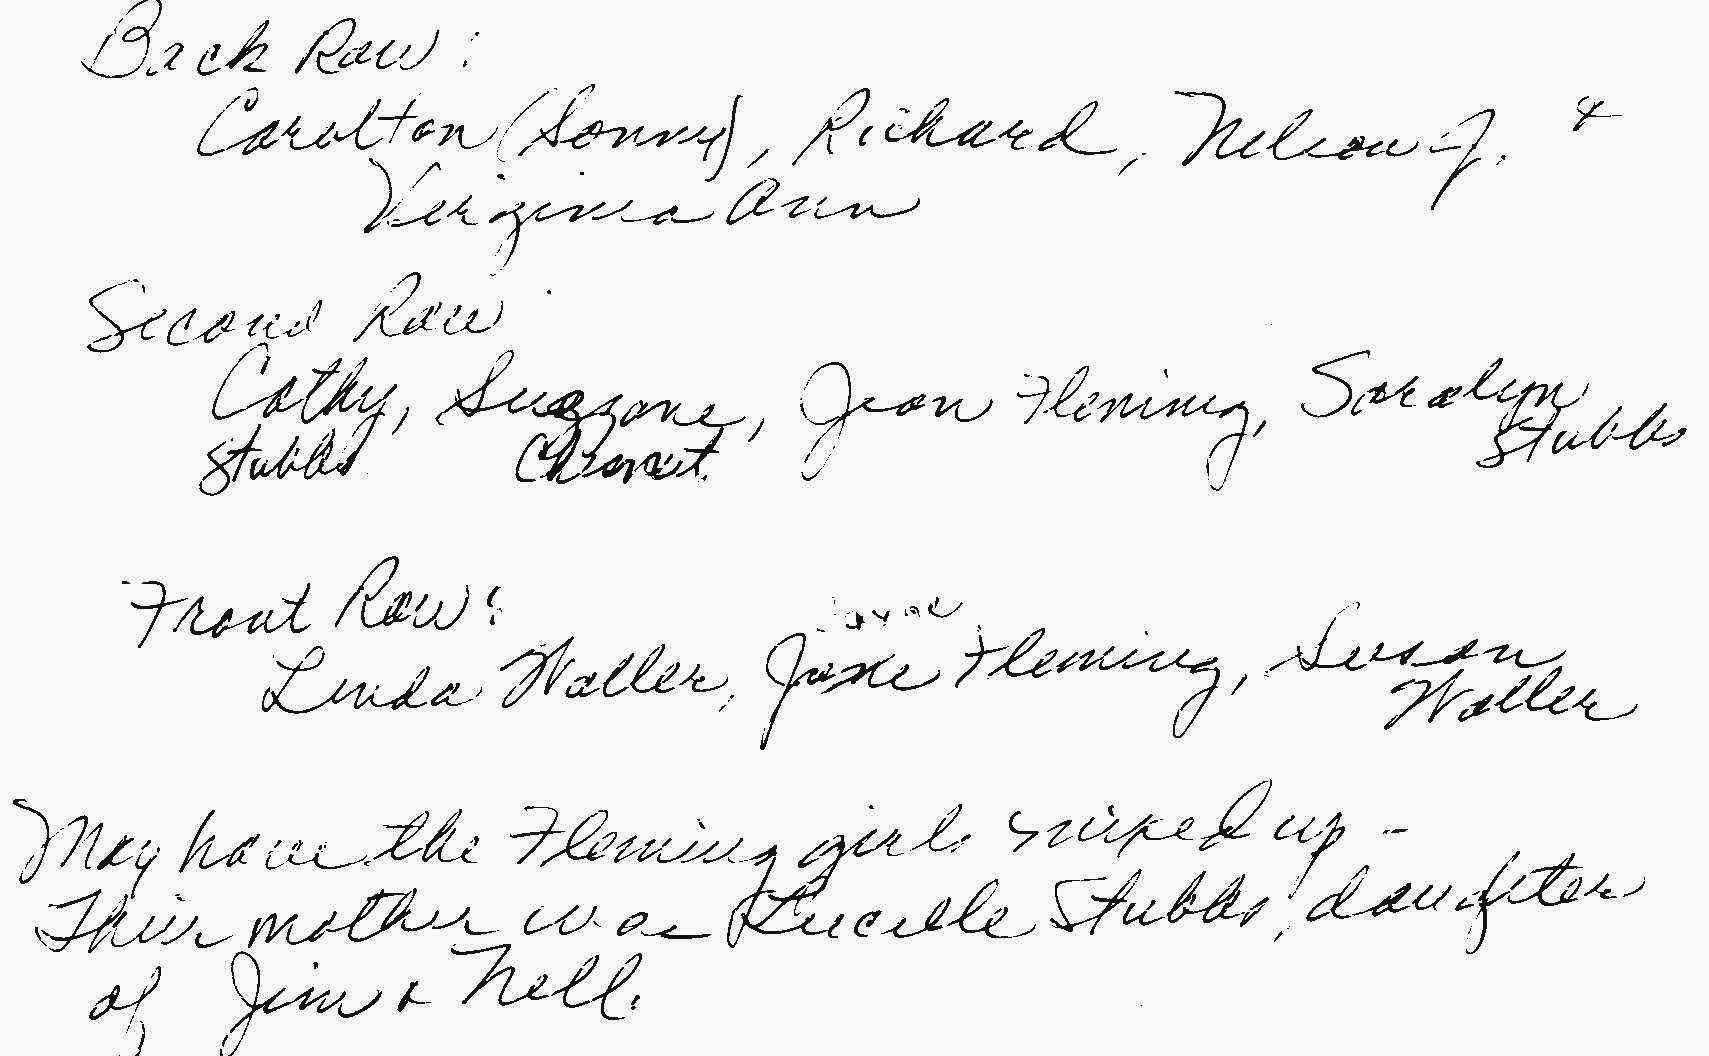 Back Row:
Carolton (Sonny), Richard, Nelson J. &
Virginia Ann
Second Row
Cathy, Suzzane, Jean Fleming, Saralyn
Stubbs Stubbs
Front Row:
Jayne
Linda Waller, Jane Fleming, Susan
Waller
May have the Fleming girls mixed up -
Their mother was Lucille Stubbs, daughter
of Jim & Nell.